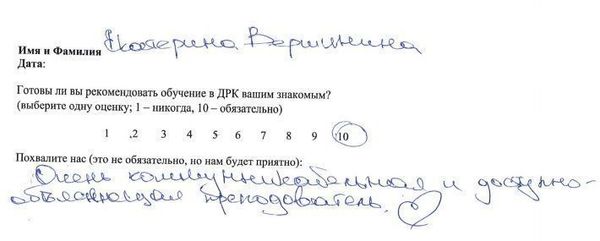 Имя и Фамилия Екатерина Вершинина
Дата:
Готовы ли вы рекомендовать обучение в ДРК вашим знакомым?
(выберите одну оценку; 1 – никогда, 10 – обязательно)
1 2 3 4 5 6 7 8 9 10
Похвалите нас (это не обязательно, но нам будет приятно):
Очень коммуникабельная и доступно-
объясняющая преподаватель.